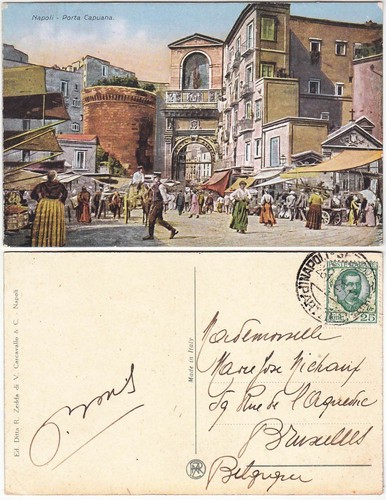 Napoli - Porta Capuana
Ed. Ditta R. Zedda di V. Carcavallo & C. - Napoli
Made in Italy
NAPOLI
25
Mademoiselle
Marie Jose Michaux
59 Rue de l'Aqueduc
Bruxelles
Belgique